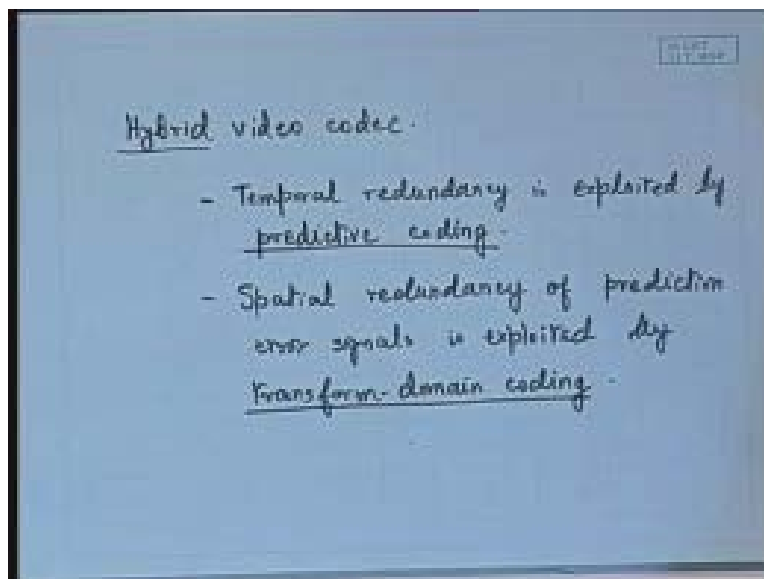 Hybrid video codec.
- Temporal redundancy is exploited by
predictive coding.
- Spatial redundancy of prediction
error signals is exploited by
transform-domain coding.